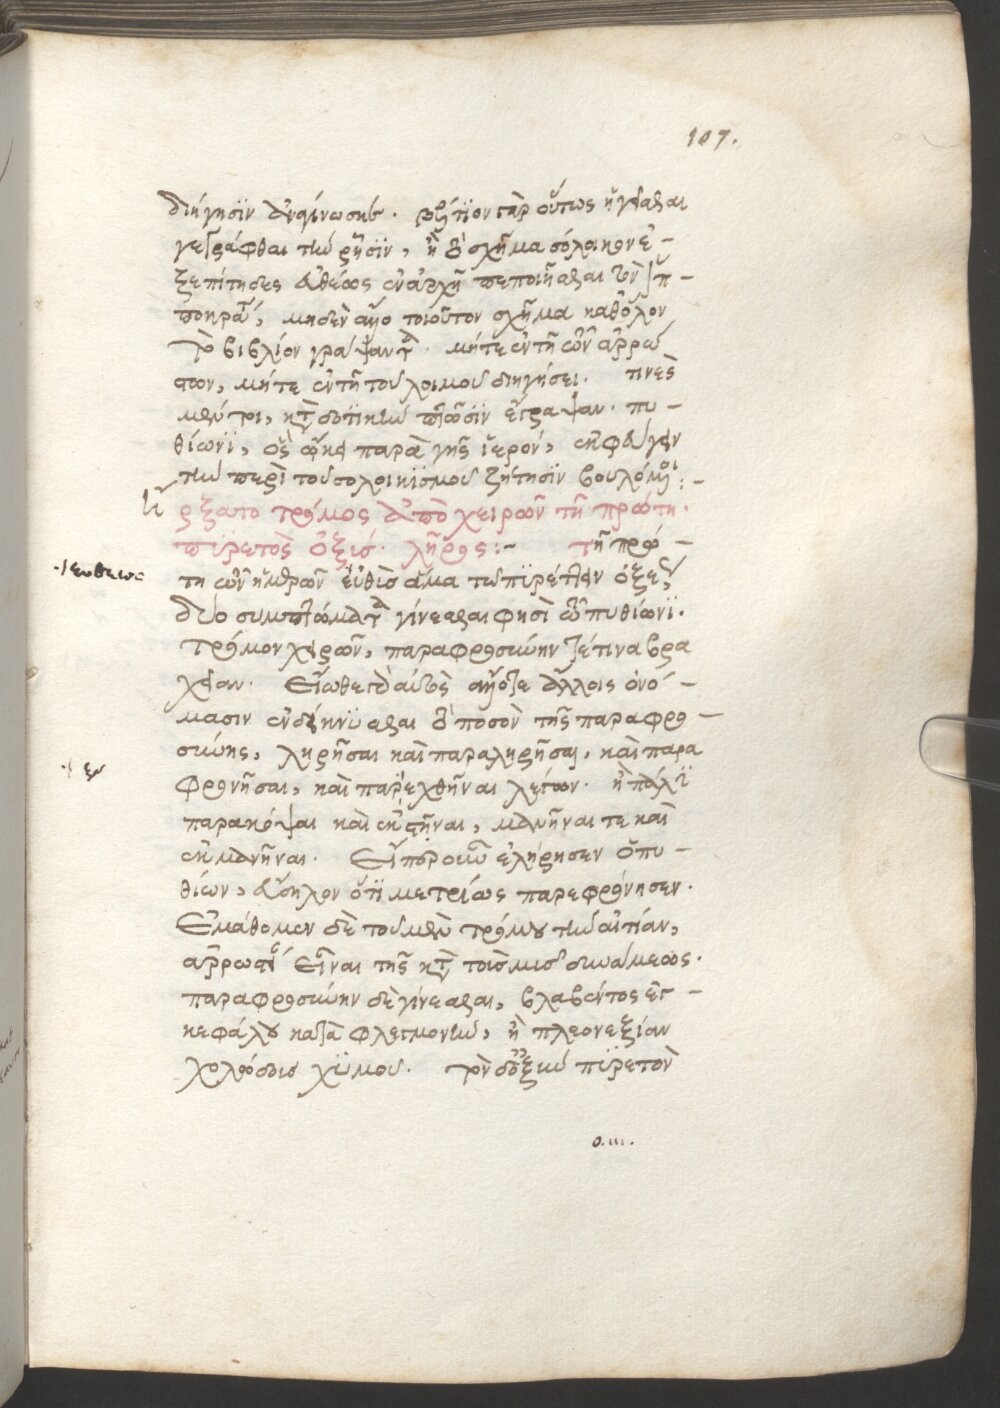 107.
διήγησϊν ἀναγίνωσκε. βέλτϊον γὰρ οὕτως ἡγεῖσθαι
γεγράφθαι τὴν ῥῆσϊν, ἢ τὸ σχῆμα σόλοικον ἐ-
ξεπίτηδες εὐθέως ἐν ἀρχῆ πεποιῆσθαι τὸν ἱπ-
ποκράτ, μηδὲν ἄλλο τοιοῦτον σχῆμα καθόλον
τὸ βιβλίον γράψαντα. μήτε ἐν τῆ τῶν ἀρρώ
στων, μήτε ἐν τῆ τοῦ λοιμοῦ διηγήσει. τινὲς
μέντοι, κατὰ δοτϊκὴν πτῶσϊν ἔγραψαν. πυ-
θίωνϊ, ὃς ᾤκει παρὰ γῆς ἱερὸν, ἐκφυγεῖν
τὴν περὶ τοῦ σολοικϊσμοῦ ζήτησϊν βουλόμενοι:-
ἤ
ρξατο τρόμος ἀπὸ χειρῶν τῆ πρώτη.
πϋρετὸς ὀξύς. λῆρος:- τῆ πρώ-
·/. εὐθέως
τη τῶν ἡμερῶν εὐθὺς ἅμα τῶ πϋρέττειν ὀξέως
δύο συμπτώματα γίνεσθαι φησὶ τῶ πυθίωνϊ.
τρόμον χειρῶν, παραφροσύνην τέ τινα βρα
χεῖαν. Εἴωθε δ' αὐτὸς ἄλλοτε ἄλλοις ὀνό-
μασιν ἐνδείκνϋσθαι τὸ ποσὸν τῆς παραφρο-
σύνης, ληρῆσαι καὶ παραληρῆσαι, καὶ παρα
·/. εν
φρονῆσαι, καὶ παρενεχθῆναι λέγων. ἢ πάλϊν
παρακόψαι καὶ ἐκστῆναι, μανῆναι τε καὶ
ἐκμανῆναι. Εἴπερ οὖν ἐλήρησεν ὁ πυ-
θίων, εὔδηλον ὅτϊ μετρίως παρεφρόνησεν.
Ἐμάθομεν δὲ τοῦ μὲν τρόμου τὴν αἰτίαν,
ἀρρωστί εἶναι τῆς κατὰ τοὺς μῦς δυνάμεως.
παραφροσύνην δὲ γίνεσθαι, βλαβέντος ἐγ-
κεφάλου κατὰ φλεγμονὴν, ἢ πλεονεξίαν
χολώδους χϋμοῦ. τὸν δ' ὀξὺν πϋρετὸν
ο.ιιι.